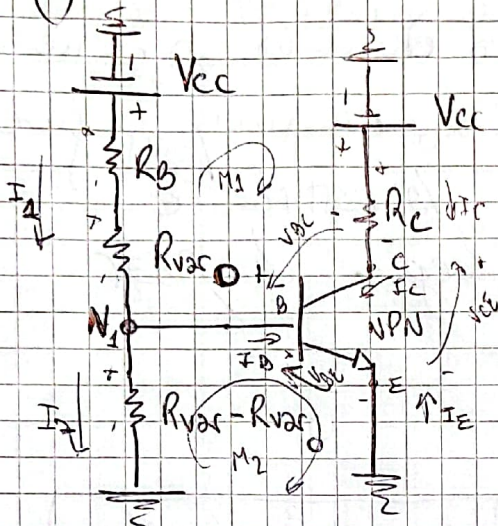 Vcc
+
Vcc
+
+
RB
M1
I1
+
Rc
Ic
VBC
-
+
Rvar0
+
C
B
Ic
N1
NPN
VCE
IB
VBE
E
-
IE
I2
+
Rvar-Rvar0
M2